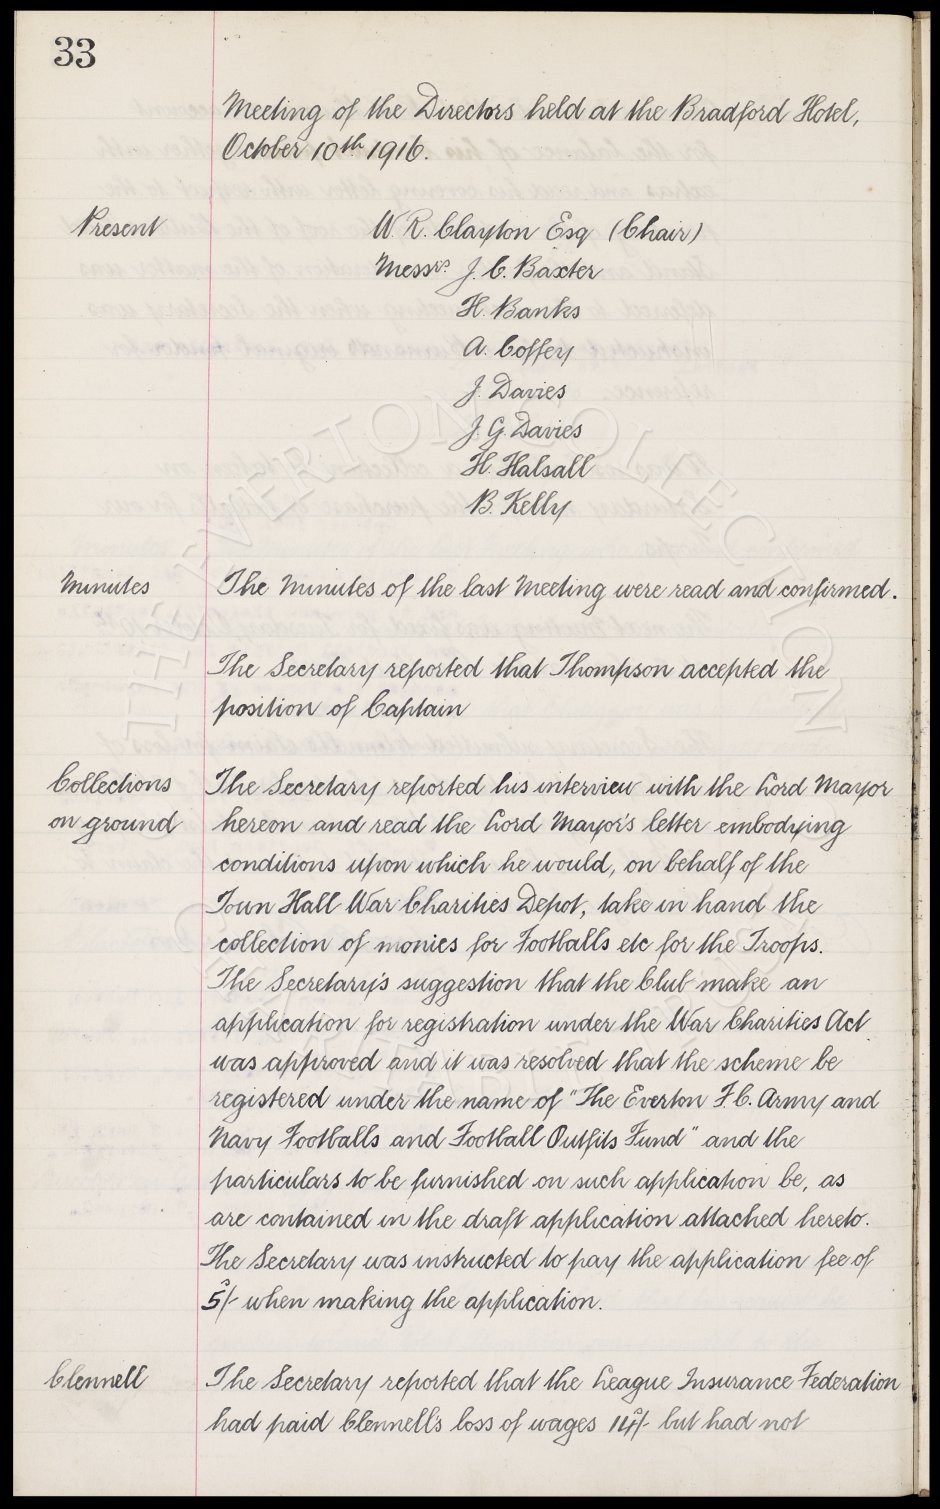 33
Meeting of the Directors held at the Bradford Hotel,
October 10th 1916.
Present
W. R. Clayton Esq (Chair)
Messrs. J. C. Baxter
H. Banks
A. Coffey
J. Davies
J. G. Davies
H. Halsall
B. Kelly
Minutes
The Minutes of the last Meeting were read and confirmed.
The Secretary reported that Thompson accepted the
position of Captain
Collections
on ground
The Secretary reported his interview with the Lord Mayor
hereon and read the Lord Mayor's letter embodying
conditions upon which he would, on behalf of the
Town Hall War Charities Depot, take in hand the
collection of monies for Footballs etc for the Troops.
The Secretary's suggestion that the Club make an
application for registration under the War Charities Act
was approved and it was resolved that the scheme be
registered under the name of "The Everton F.C. Army and
Navy Footballs and Football Outfits Fund" and the
particulars to be furnished on such application be, as
are contained in the draft application attached hereto.
The Secretary was instructed to pay the application fee of
5s/- when making the application.
Clennell
The Secretary reported that the League Insurance Federation
had paid Clennell's loss of wages 14s/- but had not
THE EVERTON COLLECTION